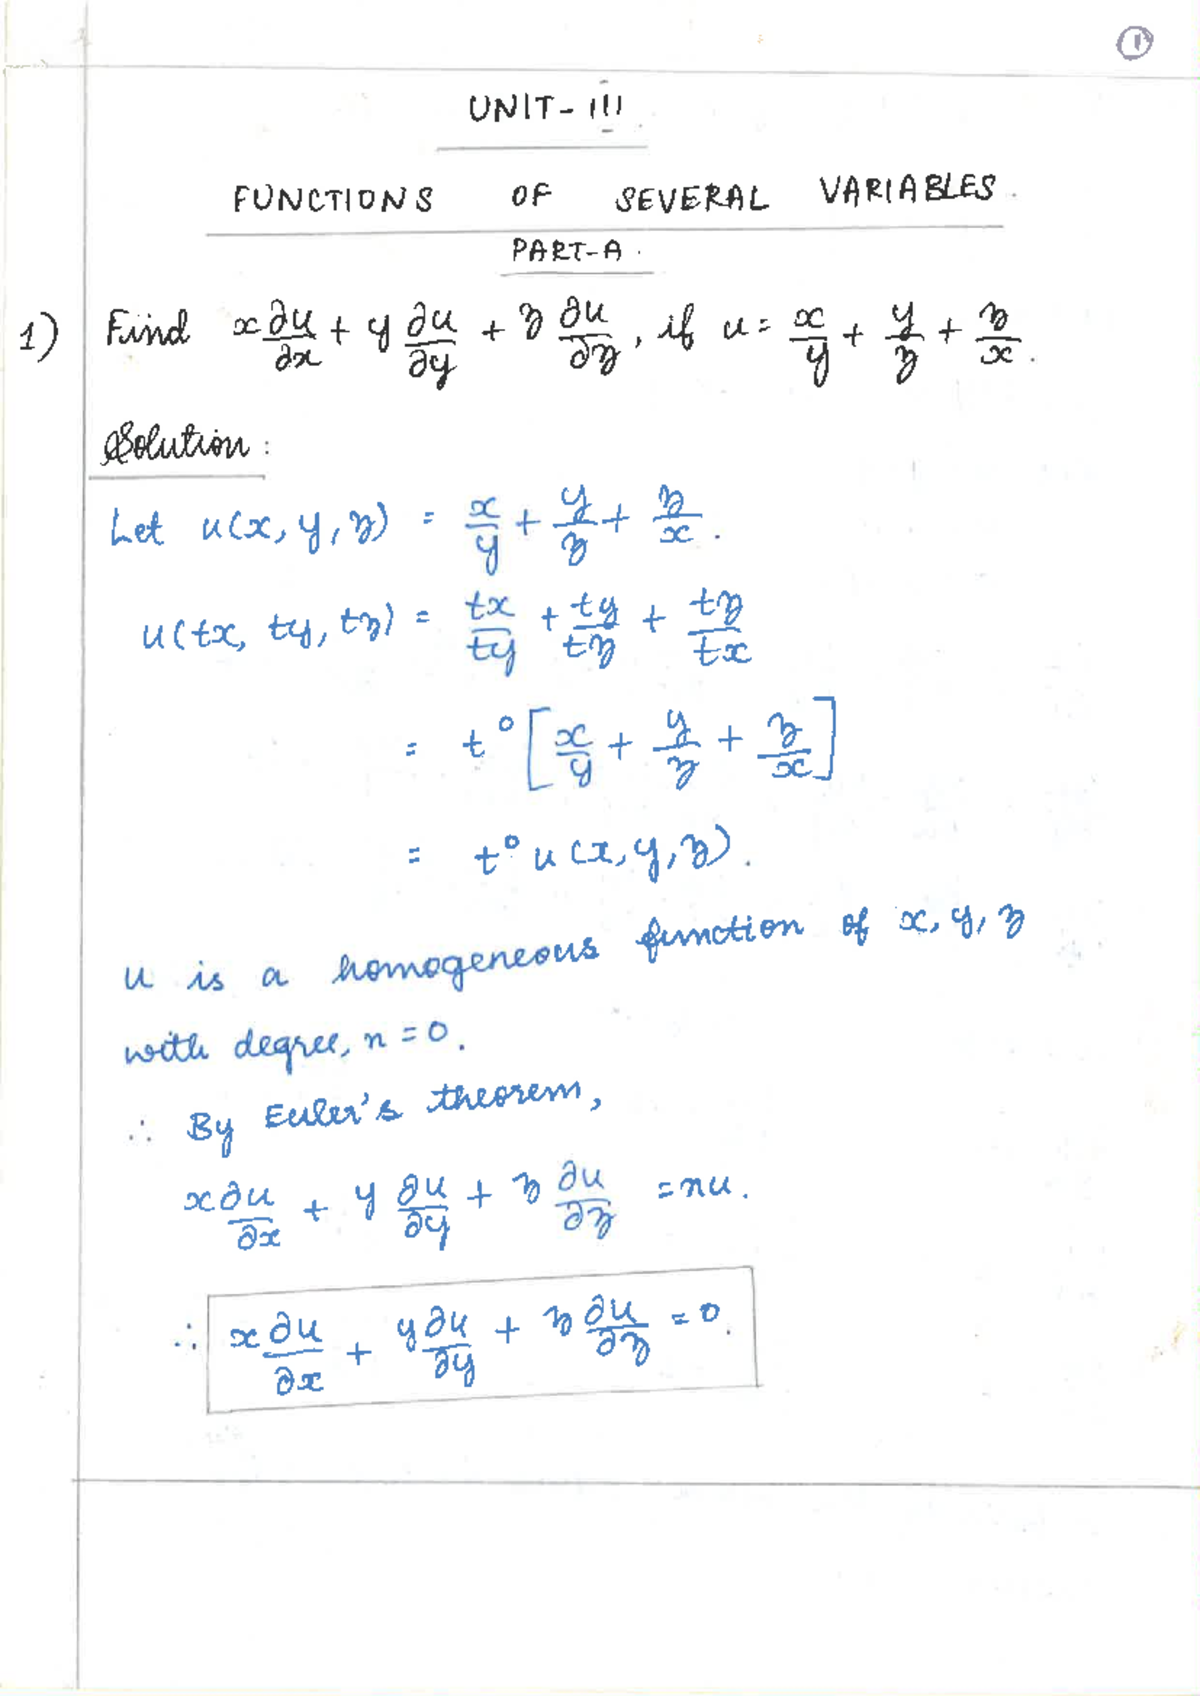 ①
UNIT - III
FUNCTIONS OF SEVERAL VARIABLES.
PART-A.
1) Find x ∂u/∂x + y ∂u/∂y + z ∂u/∂z, if u = x/y + y/z + z/x.
Solution:
Let u(x, y, z) = x/y + y/z + z/x.
u(tx, ty, tz) = tx/ty + ty/tz + tz/tx
= t⁰ [x/y + y/z + z/x]
= t⁰ u(x, y, z).
u is a homogeneous function of x, y, z
with degree, n = 0.
∴ By Euler's theorem,
x ∂u/∂x + y ∂u/∂y + z ∂u/∂z = nu.
∴ x ∂u/∂x + y ∂u/∂y + z ∂u/∂z = 0.